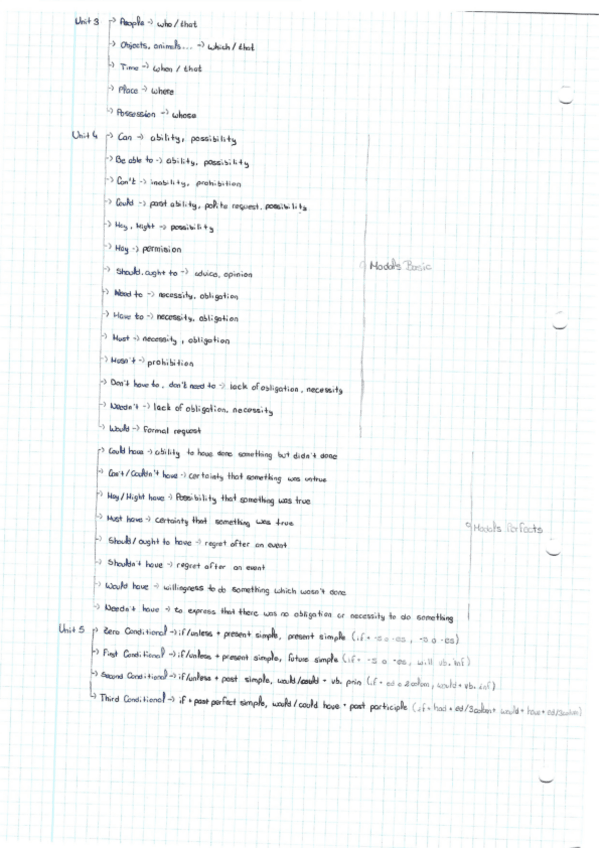 Unit 3 → People → who / that
→ Objects, animals... → which / that
→ Time → when / that
→ Place → where
→ Possession → whose
Unit 4 → Can → ability, possibility
→ Be able to → ability, possibility
→ Can't → inability, prohibition
→ Could → past ability, polite request, possibility
→ May, Might → possibility
→ May → permision
→ Should, ought to → advice, opinion
→ Need to → necessity, obligation
→ Have to → necessity, obligation
→ Must → necessity, obligation
→ Musn't → prohibition
→ Don't have to, don't need to → lack of obligation, necessity
→ Needn't → lack of obligation, necessity
→ Would → Formal request
Modals Basic
→ Could have → ability to have done something but didn't done
→ Can't / Couldn't have → certainty that something was untrue
→ May / Might have → Possibility that something was true
→ Must have → certainty that something was true
→ Should / ought to have → regret after an event
→ Shouldn't have → regret after an event
→ Would have → willingness to do something which wasn't done
→ Needn't have → to express that there was no obligation or necessity to do something
Modals Perfects
Unit 5 → Zero Conditional → if/unless + present simple, present simple (if + -s o -es, -s o -es)
→ First Conditional → if/unless + present simple, future simple (if + -s o -es, will vb. inf)
→ Second Conditional → if/unless + past simple, would/could + vb. prin (if + ed o 2colum, would + vb. inf)
→ Third Conditional → if + past perfect simple, would / could have + past participle (if + had + ed/3colum + would + have + ed/3colum)